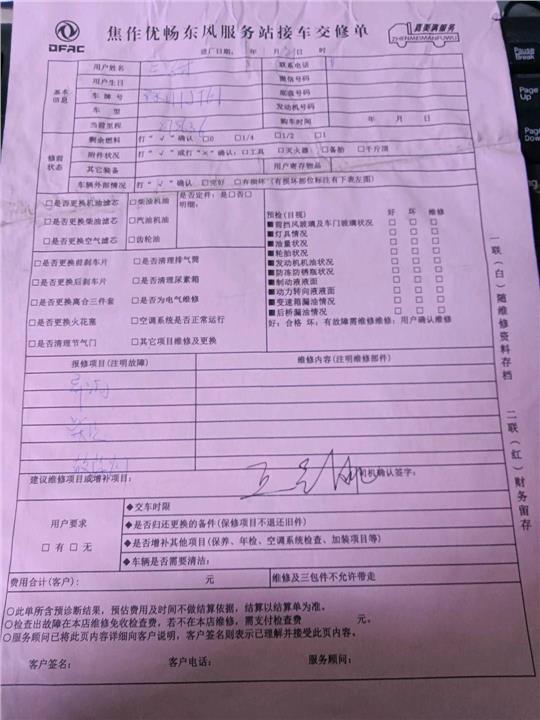 DFAC
焦作优畅东风服务站接车交修单
真美满服务
ZHENMEIMANFUWU
进厂日期: 年 月 日 时
基本信息
用户姓名 联系电话
用户生日 微信号码
车牌号 底盘号码
车型 发动机号码
当前里程 购车时间 年 月 日
修前状态
剩余燃料 打“√”确认 □0 □1/4 □1/2 □1
附件状况 打“√”或打“×”确认: □工具 □灭火器 □备胎 □千斤顶
其它装备 用户寄存物品
车辆外部情况 打“√”确认 □完好 □有损坏(有损坏部位标注有下表左图)
□是否更换机油滤芯 □柴油机油 是否定件: 是□否□
□是否更换柴油滤芯 □汽油机油 明细:
□是否更换空气滤芯 □齿轮油
□是否更换前刹车片 □是否清理排气筒
□是否更换后刹车片 □是否清理尿素箱
□是否更换离合三件套 □是否为电气维修
□是否更换火花塞 □空调系统是否正常运行
□是否清理节气门 □其它项目维修及更换
预检(目视) 好 坏 维修
■前挡风玻璃及车门玻璃状况 □ □ □
■灯具情况 □ □ □
■油量状况 □ □ □
■轮胎状况 □ □ □
■发动机机油状况 □ □ □
■防冻防锈瓶状况 □ □ □
■制动液液面 □ □ □
■动力转向液液面 □ □ □
■变速箱漏油情况 □ □ □
■后桥漏油情况 □ □ □
好: 合格 坏: 有故障需维修维修: 用户确认维修
报修项目(注明故障) 维修内容(注明维修部件)
建议维修项目或增补项目: 司机确认签字:
用户要求
□有 □无
◆交车时限
◆是否归还更换的备件(保修项目不退还旧件)
◆是否增补其他项目(保养、年检、空调系统检查、加装项目等)
◆车辆是否需要清洁:
费用合计(客户): 元 维修及三包件不允许带走
○此单所含预诊断结果,预估费用及时间不做结算依据,结算以结算单为准。
○检查出故障在本店维修免收检查费,若不在本店维修,需支付检查费 元。
○服务顾问已将此页内容详细向客户说明,客户签名则表示已理解并接受此页内容。
客户签名: 客户电话: 服务顾问:
一联(白)随维修资料存档 二联(红)财务留存
Pause
Break
Page
Up
Page
Down